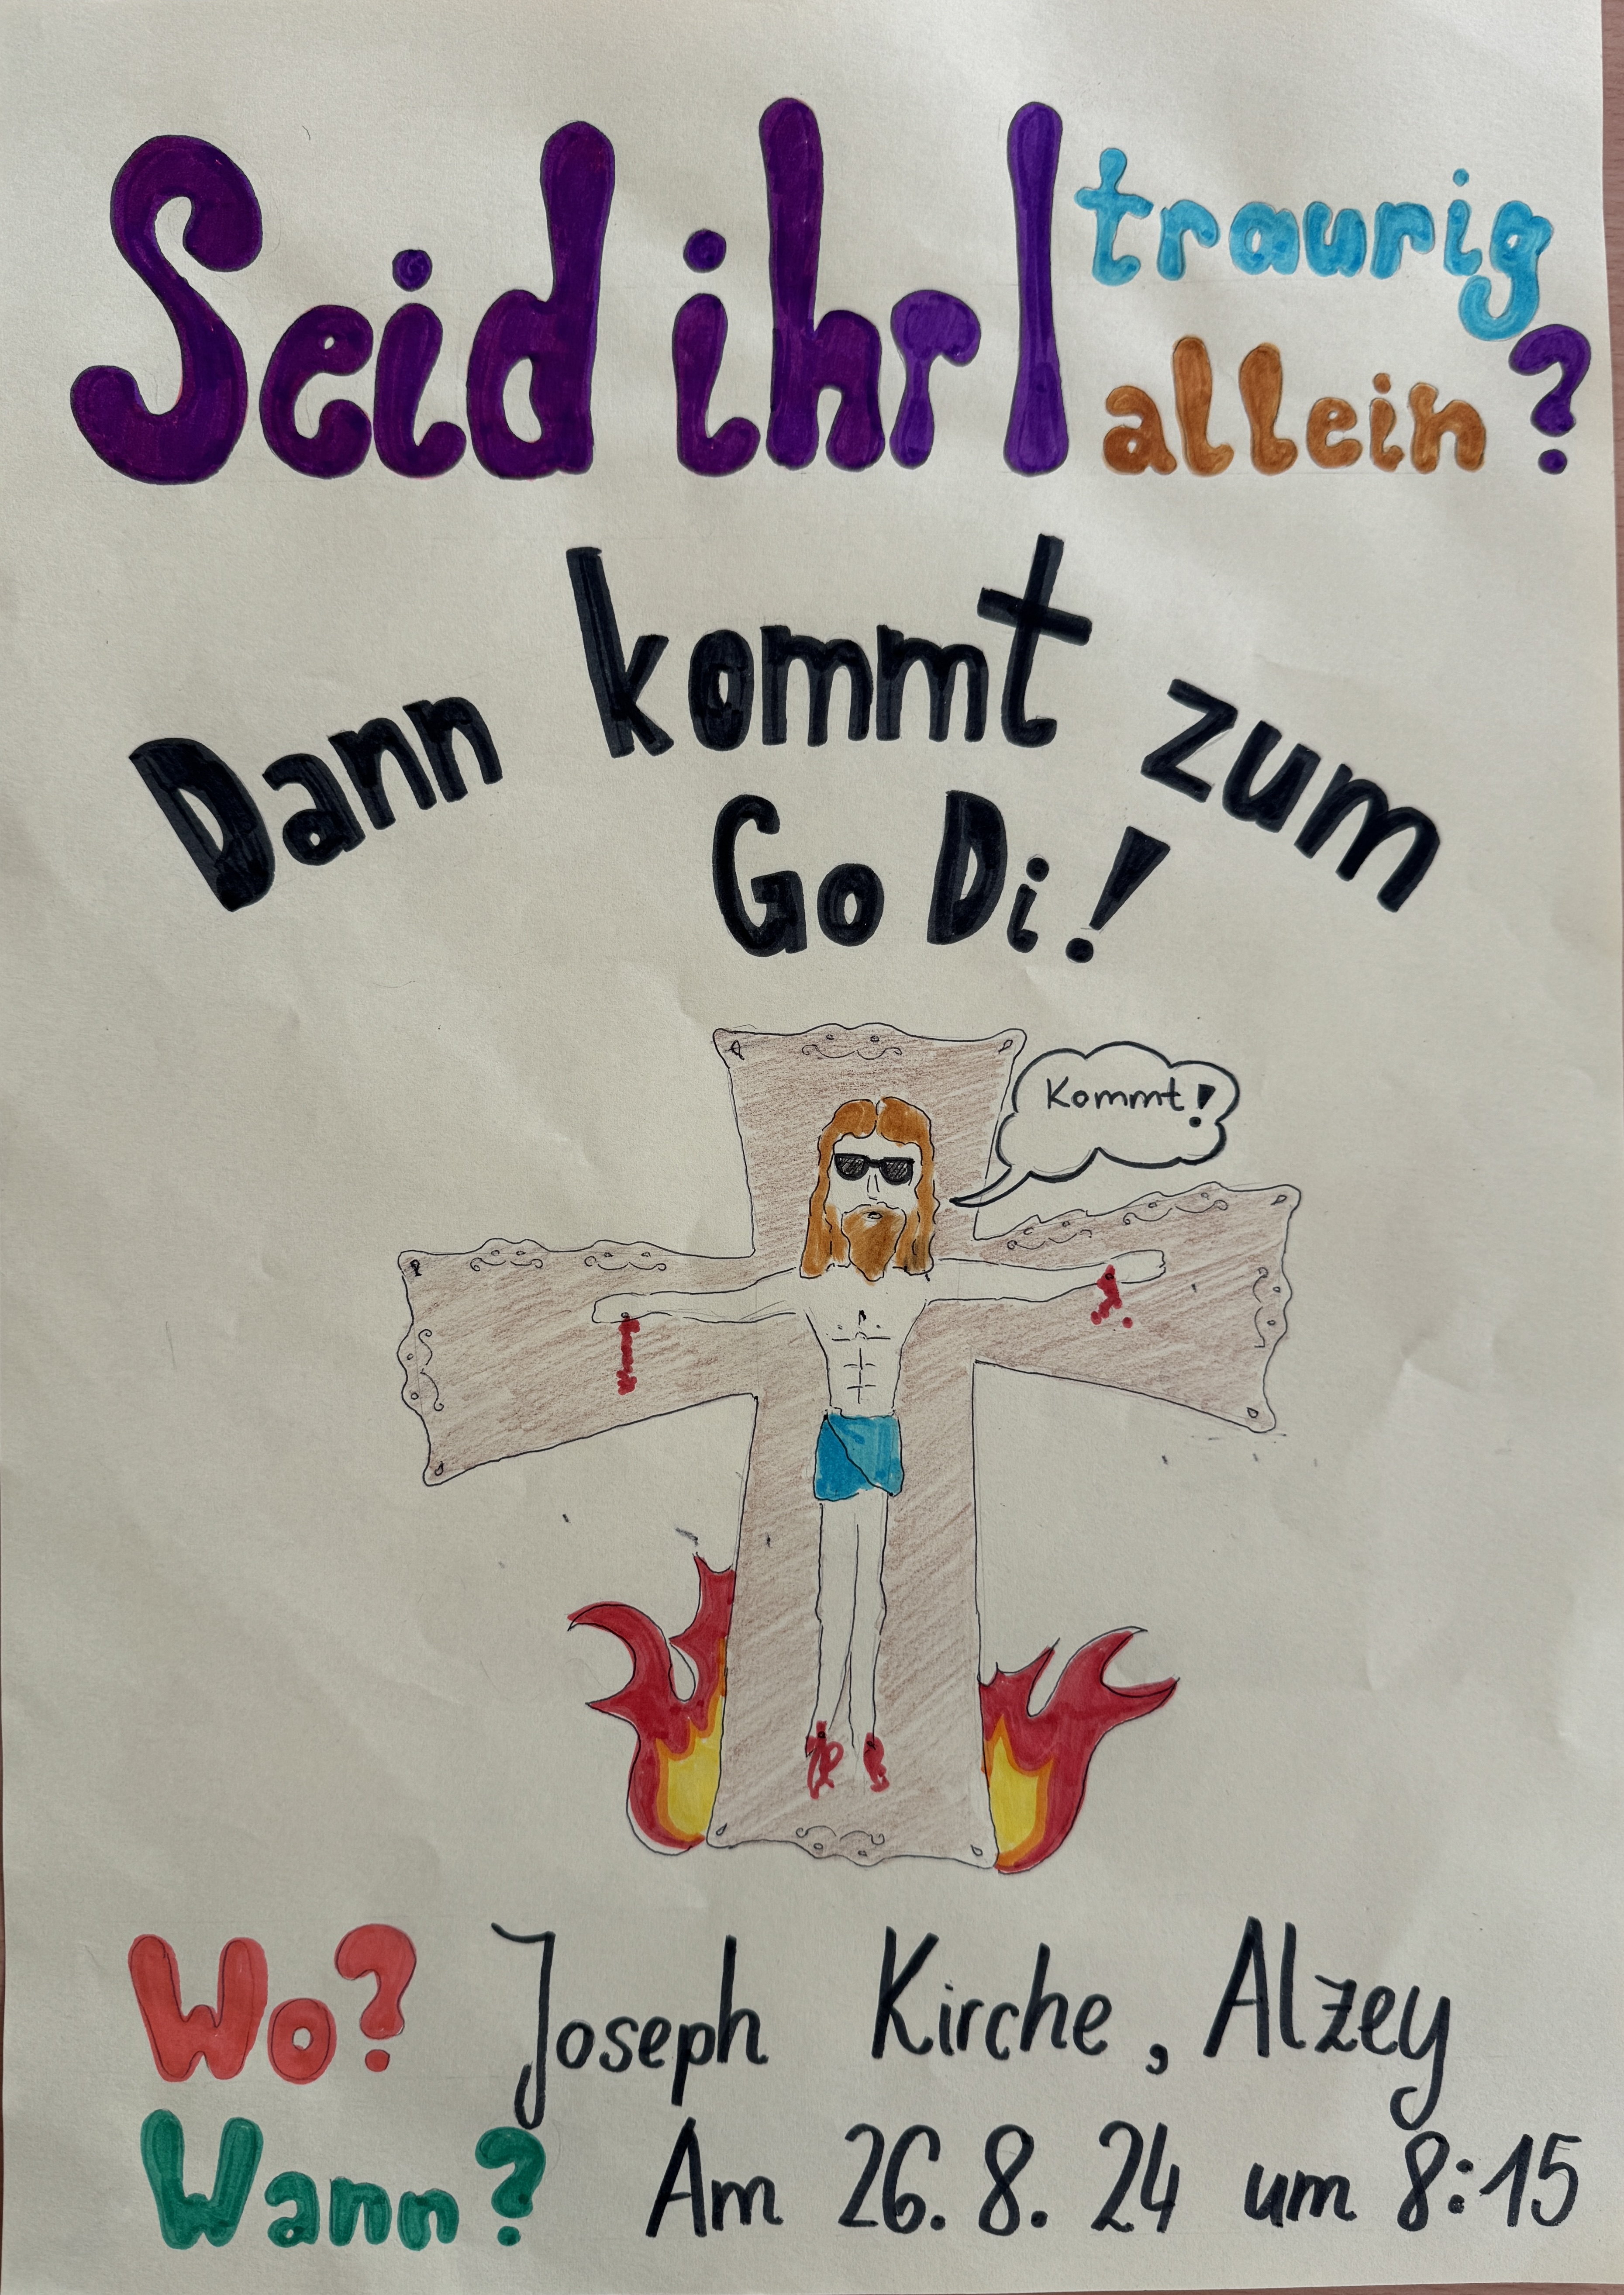 Seid ihr | traurig
allein?
Dann kommt zum
GoDi!
Kommt!
Wo? Joseph Kirche, Alzey
Wann? Am 26.8.24 um 8:15